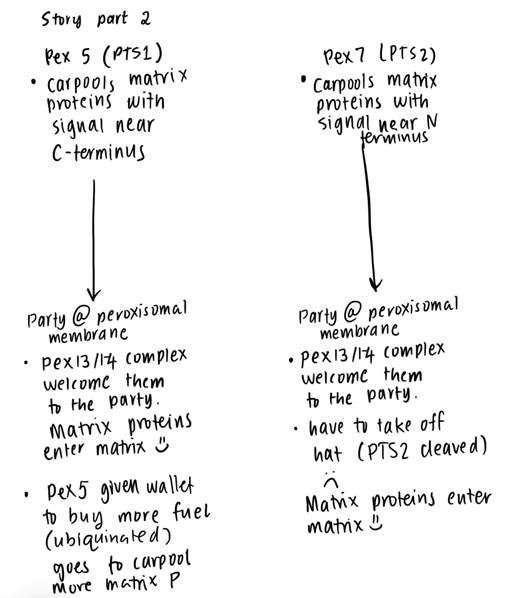 Story part 2
Pex 5 (PTS1)
• carpools matrix
proteins with
signal near
C-terminus
Party @ peroxisomal
membrane
• pex13/14 complex
welcome them
to the party.
Matrix proteins
enter matrix :)
• Pex5 given wallet
to buy more fuel
(ubiquinated)
goes to carpool
more matrix P
Pex7 (PTS2)
• Carpools matrix
proteins with
signal near N
terminus
Party @ peroxisomal
membrane
• pex13/14 complex
welcome them
to the party.
• have to take off
hat (PTS2 cleaved)
:(
Matrix proteins enter
matrix :)